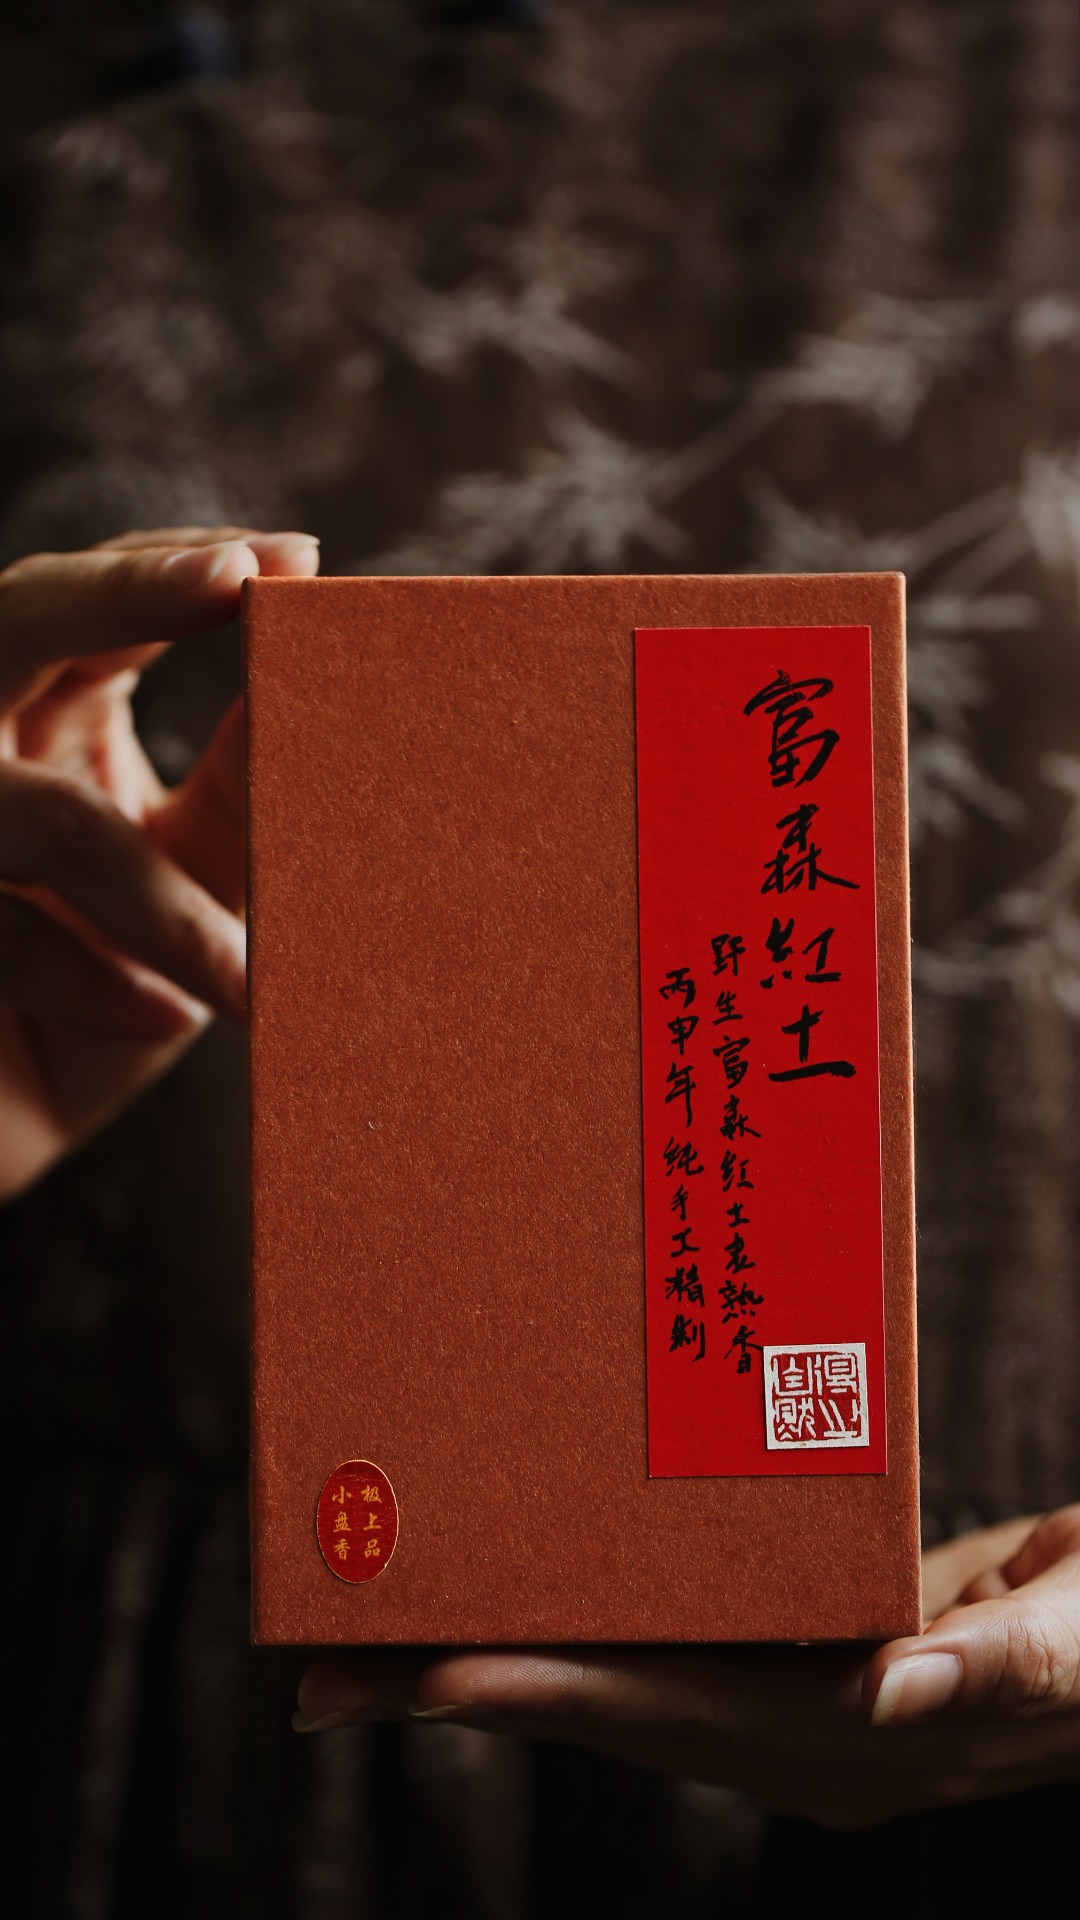 富森紅土
野生富森红土老熟香
丙申年纯手工精制
极上品
小盘香